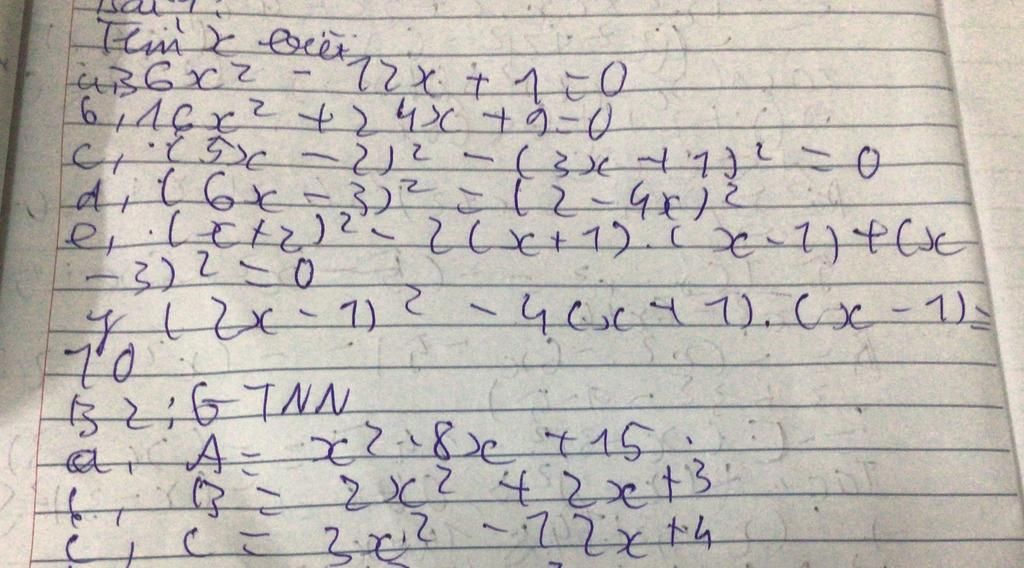 Bài 1:
Tìm x biết
a, 36x² - 12x + 1 = 0
b, 16x² + 24x + 9 = 0
c, (5x - 2)² - (3x + 1)² = 0
d, (6x - 3)² = (2 - 4x)²
e, (x+2)² - 2(x+1).(x-1) + (x
- 3)² = 0
(2x - 1)² - 4(x + 1).(x - 1) =
10
B 2: GTNN
a, A = x² - 8x + 15
b, B = 2x² + 2x + 3
c, C = 3x² - 12x + 4